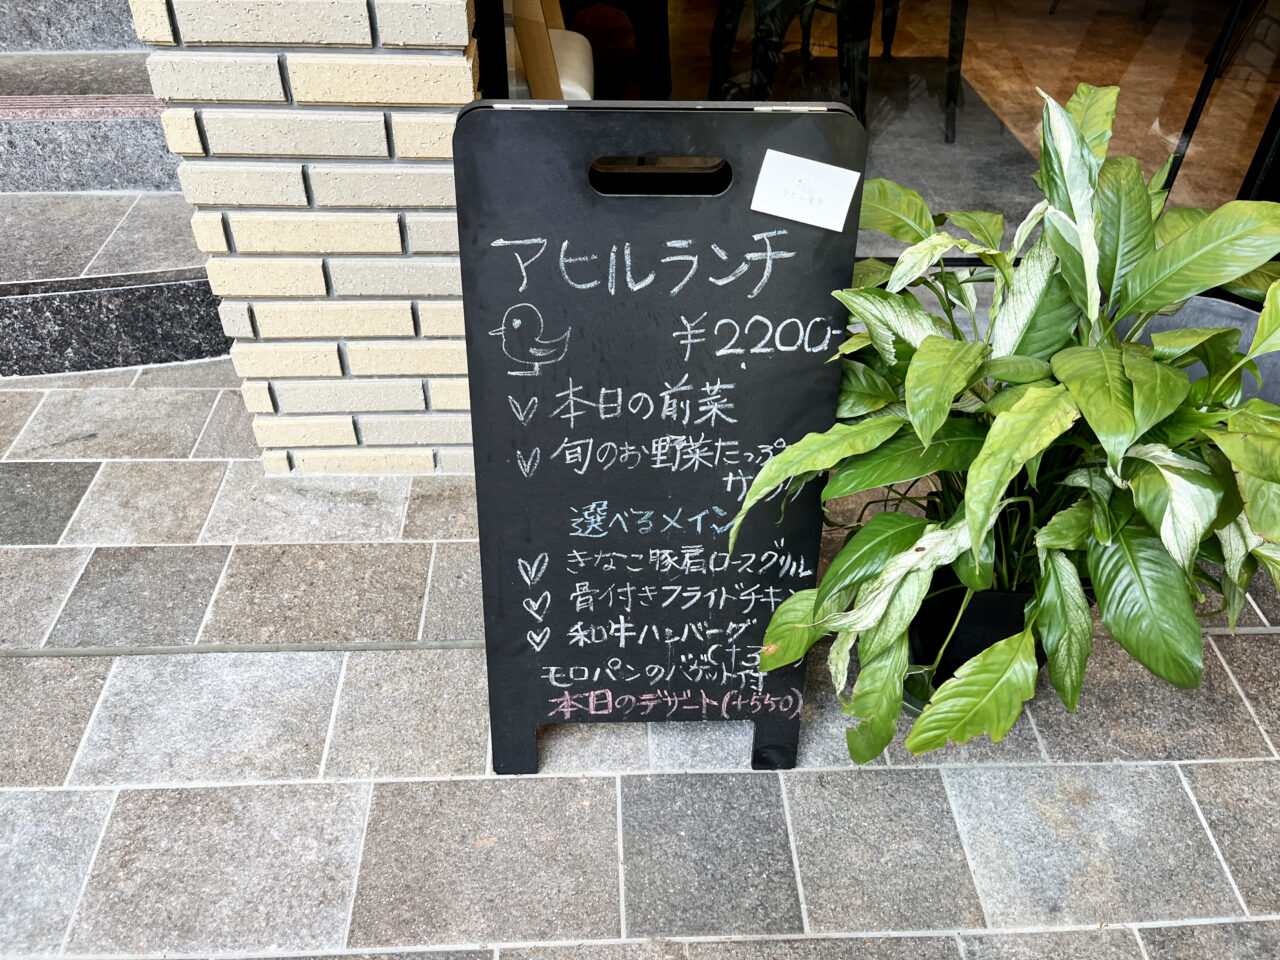 アヒル食堂
アヒルランチ
¥2200-
本日の前菜
旬のお野菜たっぷ
サラダ
選べるメイン
きなこ豚肩ロースグリル
骨付きフライドチキン
和牛ハンバーグ
(+3
モロパンのバゲット付
本日のデザート(+550)